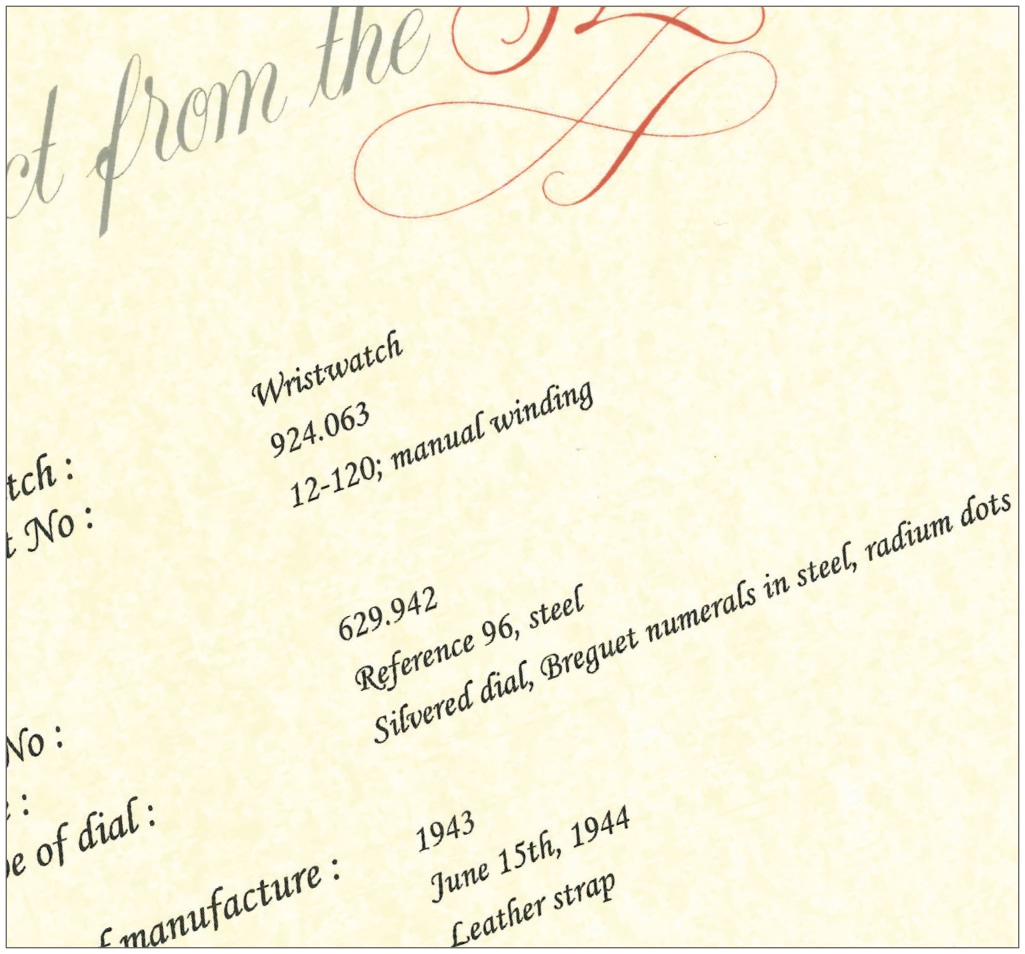 ct from the
Wristwatch
tch : 924.063
t No : 12-120; manual winding
629.942
No : Reference 96, steel
e : Silvered dial, Breguet numerals in steel, radium dots
pe of dial :
1943
f manufacture : June 15th, 1944
Leather strap